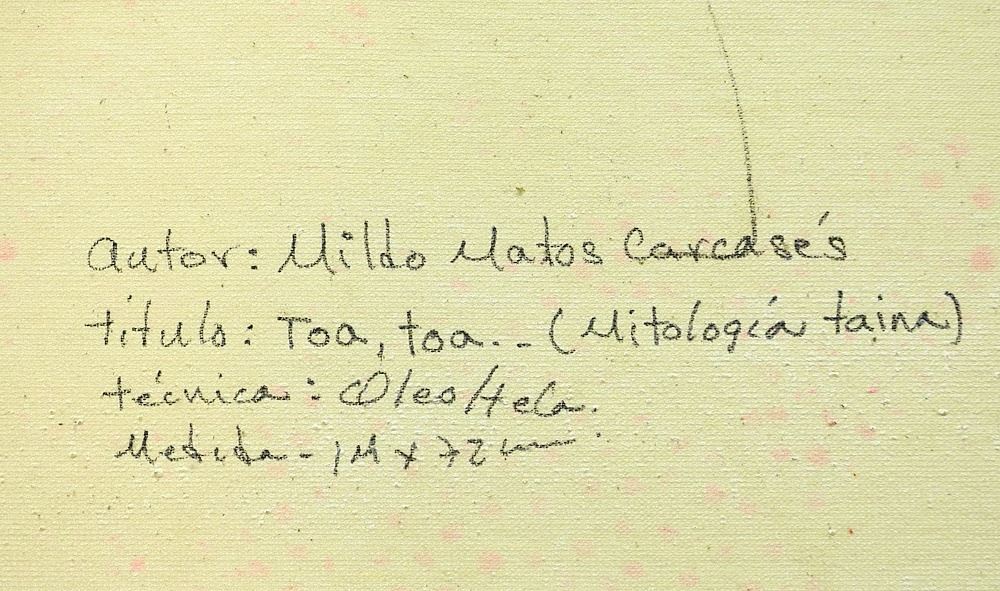 autor: Mildo Matos Carcasés
título: Toa, toa.. (Mitología taina)
técnica: Oleo/tela.
Medida - 1M x 72cm.